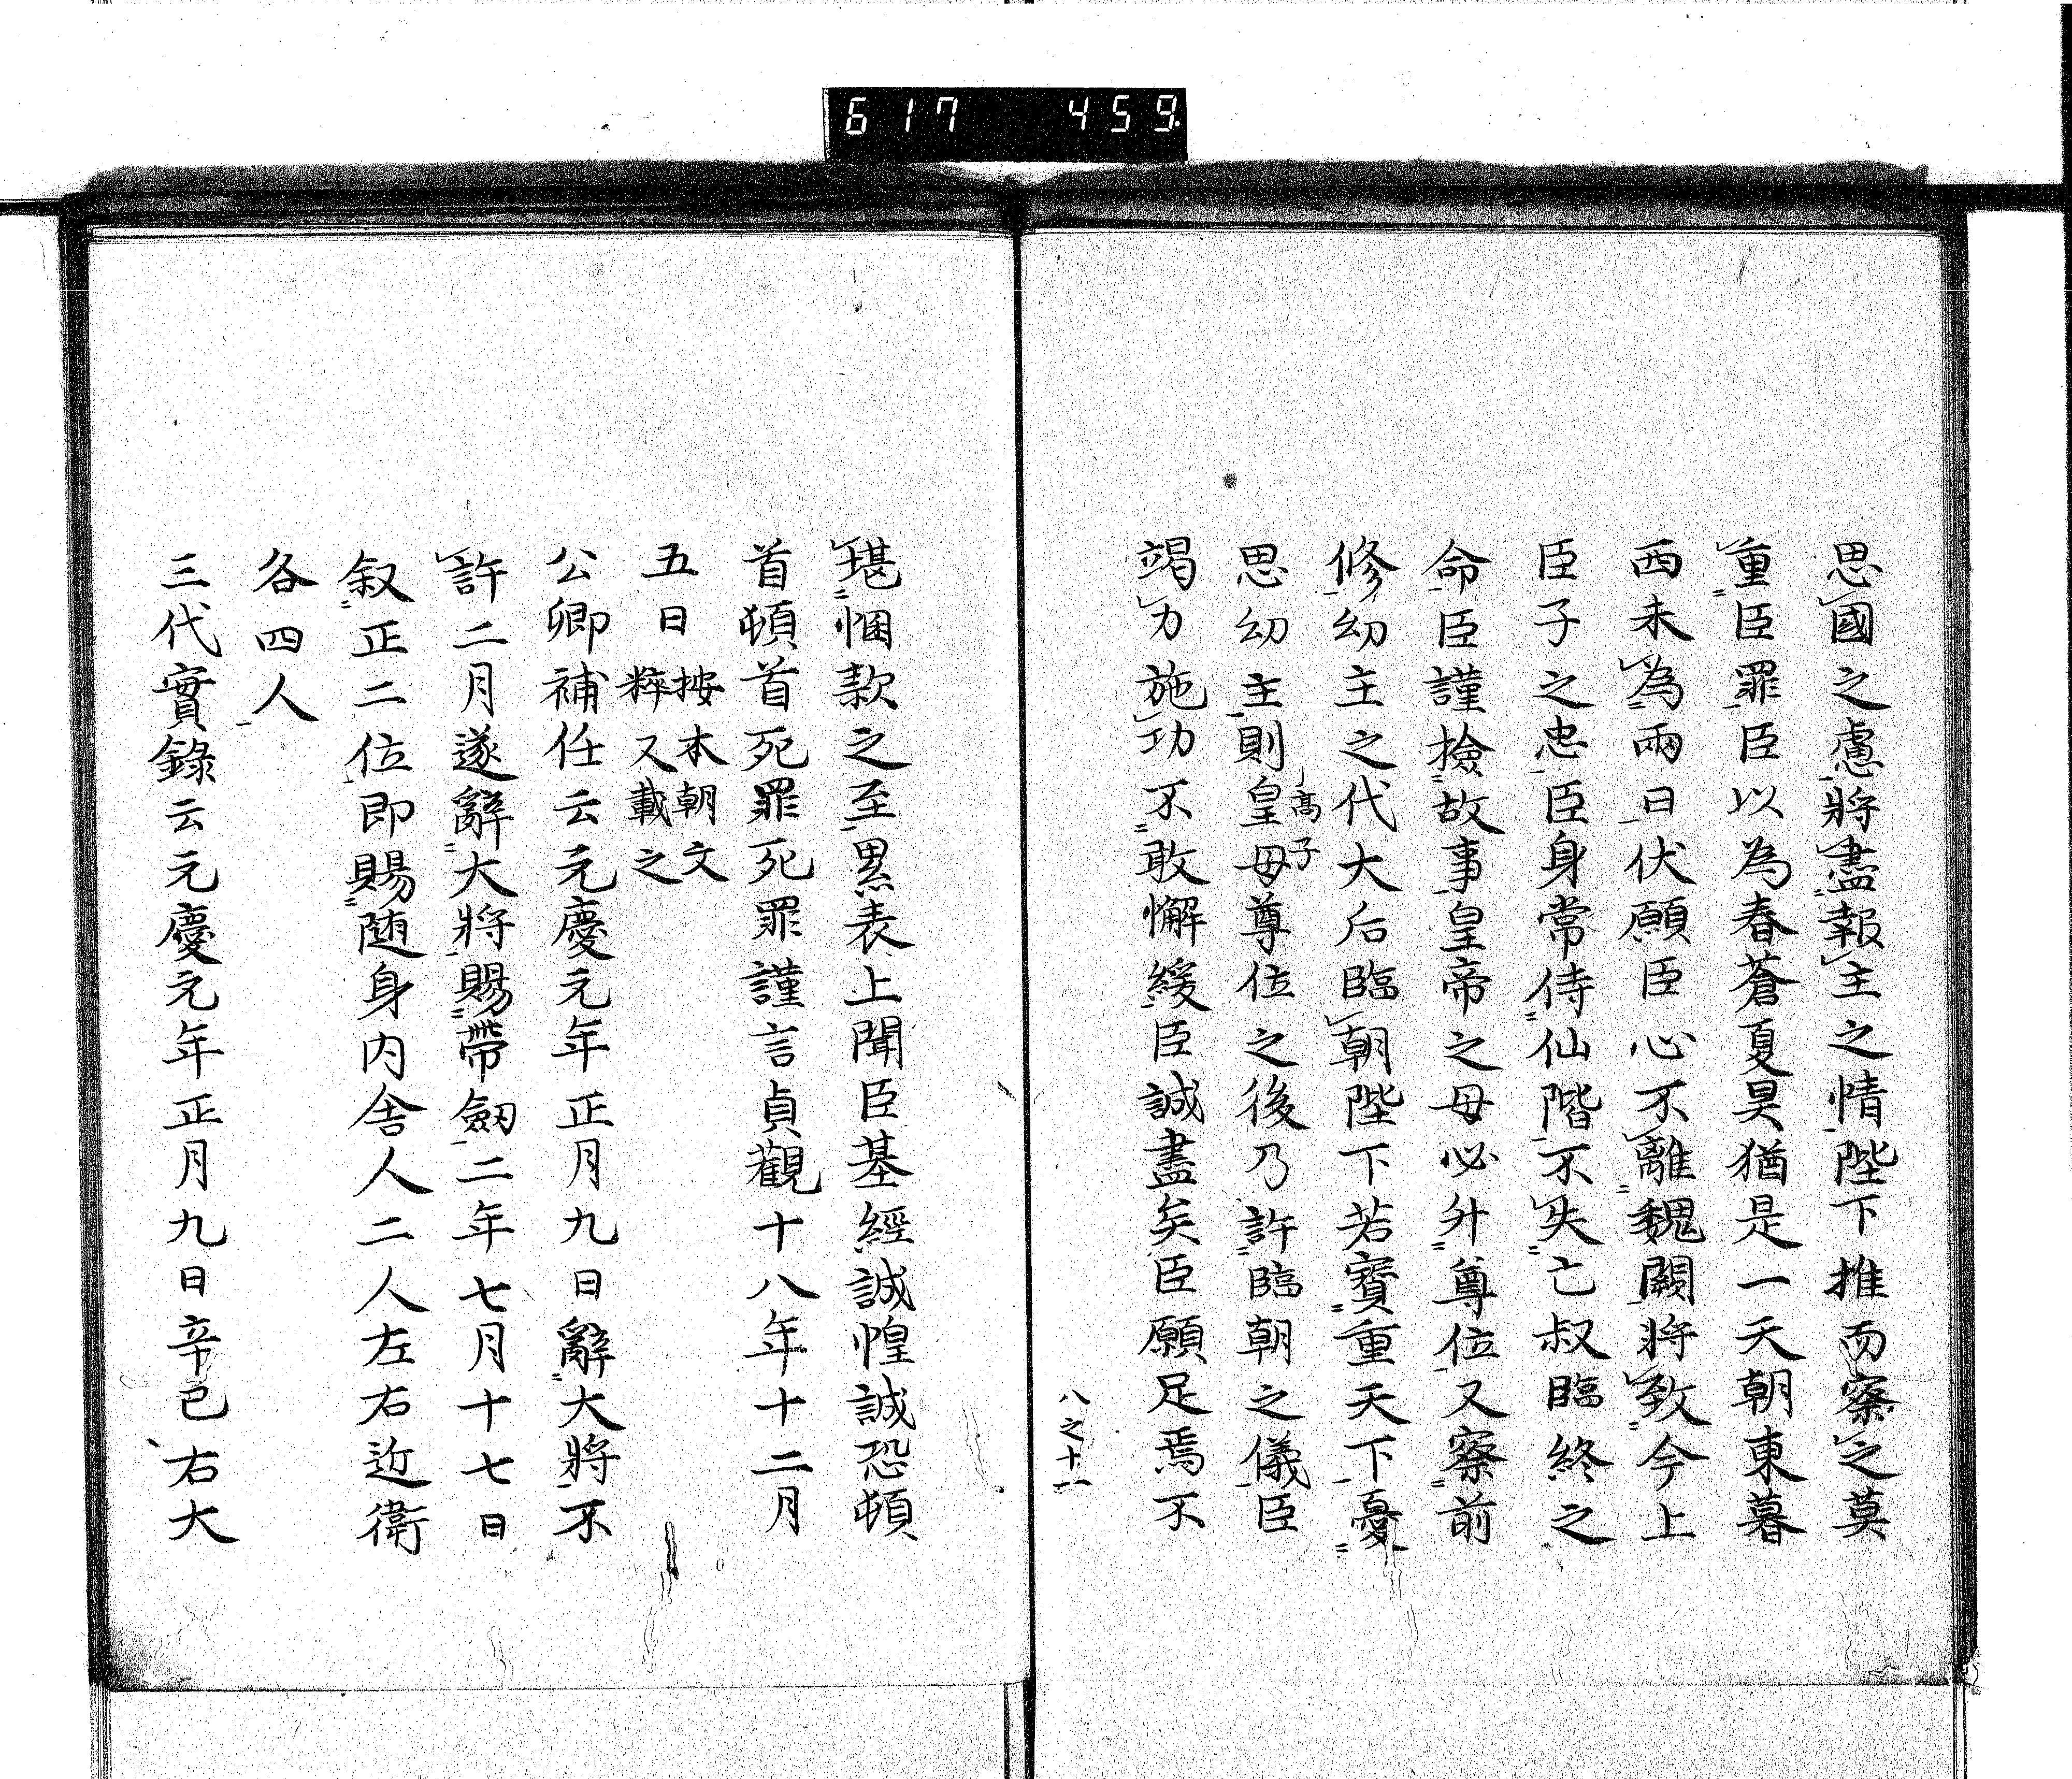 617 459
思國之慮將盡報主之情陛下推而察之莫
重臣罪臣以為春蒼夏昊猶是一天朝東暮
西未為兩日伏願臣心不離魏闕將致今上
臣子之忠臣身常侍仙階不失亡叔臨終之
命臣謹撿故事皇帝之母必升尊位又察前
修幼主之代大后臨朝陛下若寶重天下憂
思幼主則皇母尊位之後乃許臨朝之儀臣
高子
竭力施功不敢懈緩臣誠盡矣臣願足焉不
八之十一
堪悃款之至累表上聞臣基經誠惶誠恐頓
首頓首死罪死罪謹言貞觀十八年十二月
五日
按本朝文
粹又載之
公卿補任云元慶元年正月九日辭大將不
許二月遂辭大將賜帶劔二年七月十七日
叙正二位即賜随身内舎人二人左右近衛
各四人
三代實錄云元慶元年正月九日辛巳右大